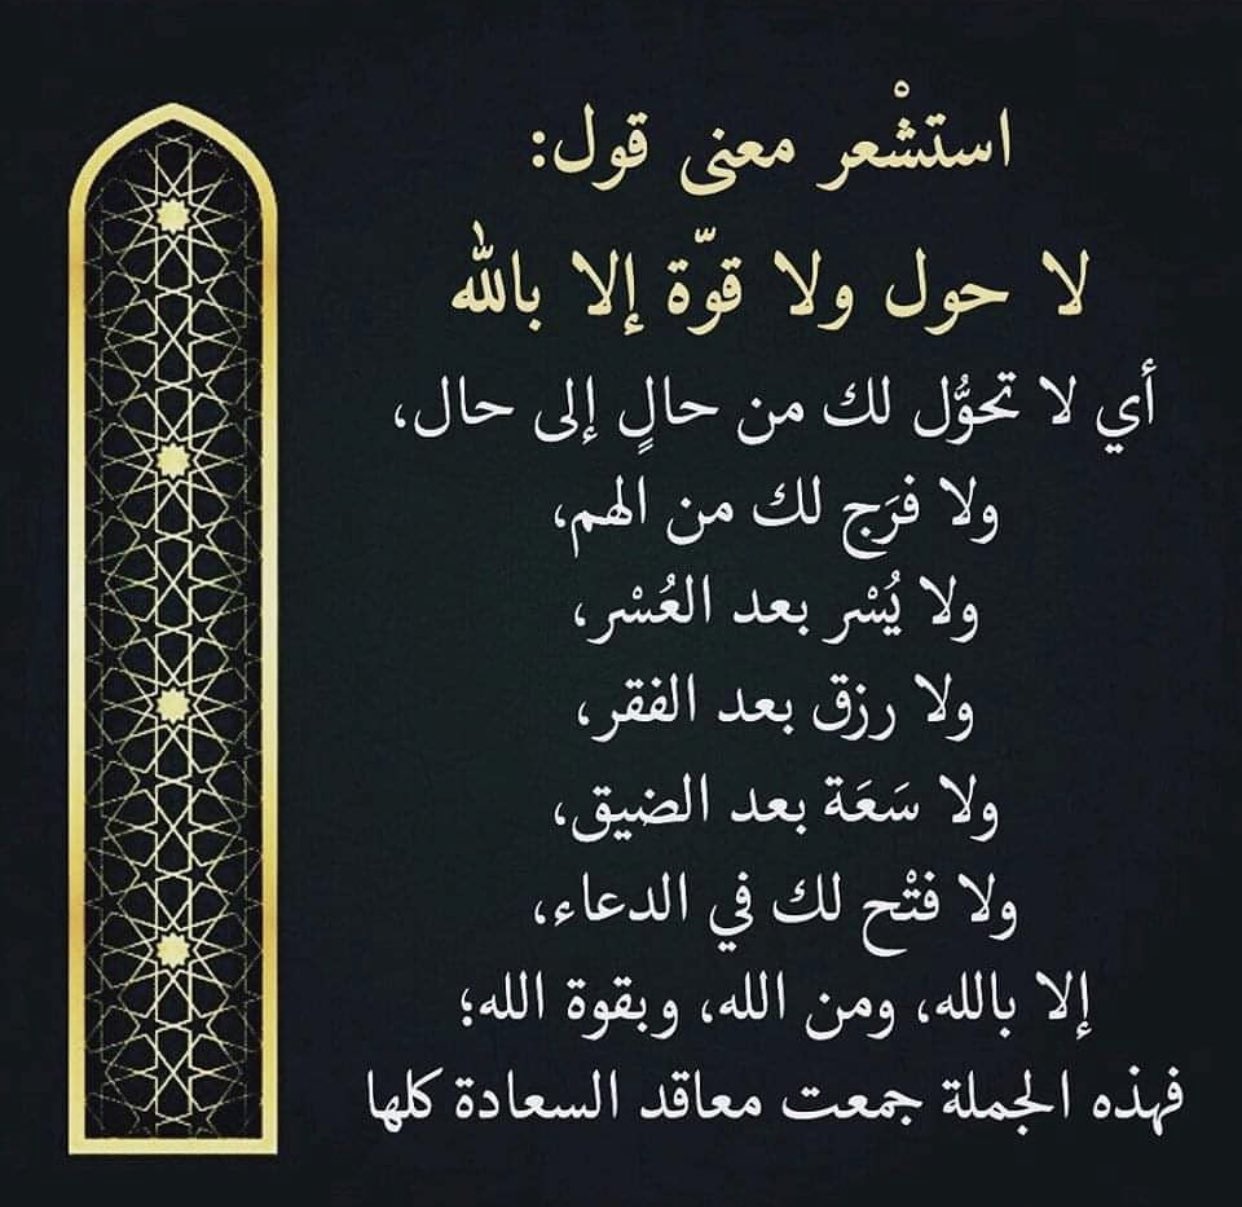 استشْعر معنى قول:
لا حول ولا قوّة إلا بالله
أي لا تحوُّل لك من حالٍ إلى حال،
ولا فرَج لك من الهم،
ولا يُسْر بعد العُسْر،
ولا رزق بعد الفقر،
ولا سَعَة بعد الضيق،
ولا فتْح لك في الدعاء،
إلا بالله، ومن الله، وبقوة الله؛
فهذه الجملة جمعت معاقد السعادة كلها